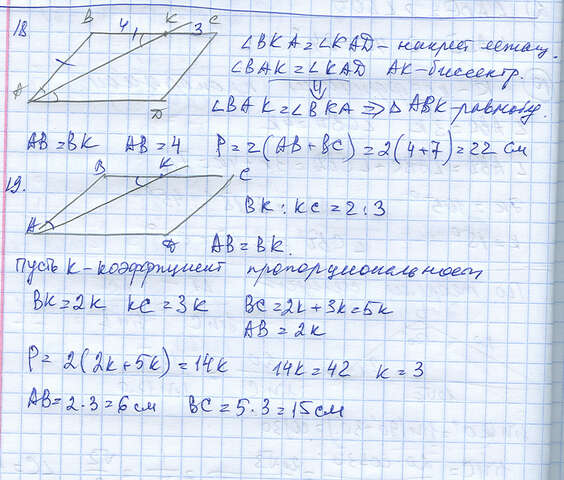 18
B 4 K 3 C
A D
∠BKA = ∠KAD - накрест лежащ.
∠BAK = ∠KAD AK - биссектр.
⇓
∠BAK = ∠BKA ⇒ Δ ABK - равнобед.
AB = BK AB = 4 P = 2(AB + BC) = 2(4+7) = 22 см
19.
B K C
A D
BK : KC = 2 : 3
AB = BK.
Пусть k - коэффициент пропорциональности
BK = 2k KC = 3k BC = 2k + 3k = 5k
AB = 2k
P = 2(2k + 5k) = 14k 14k = 42 k = 3
AB = 2 · 3 = 6 см BC = 5 · 3 = 15 см